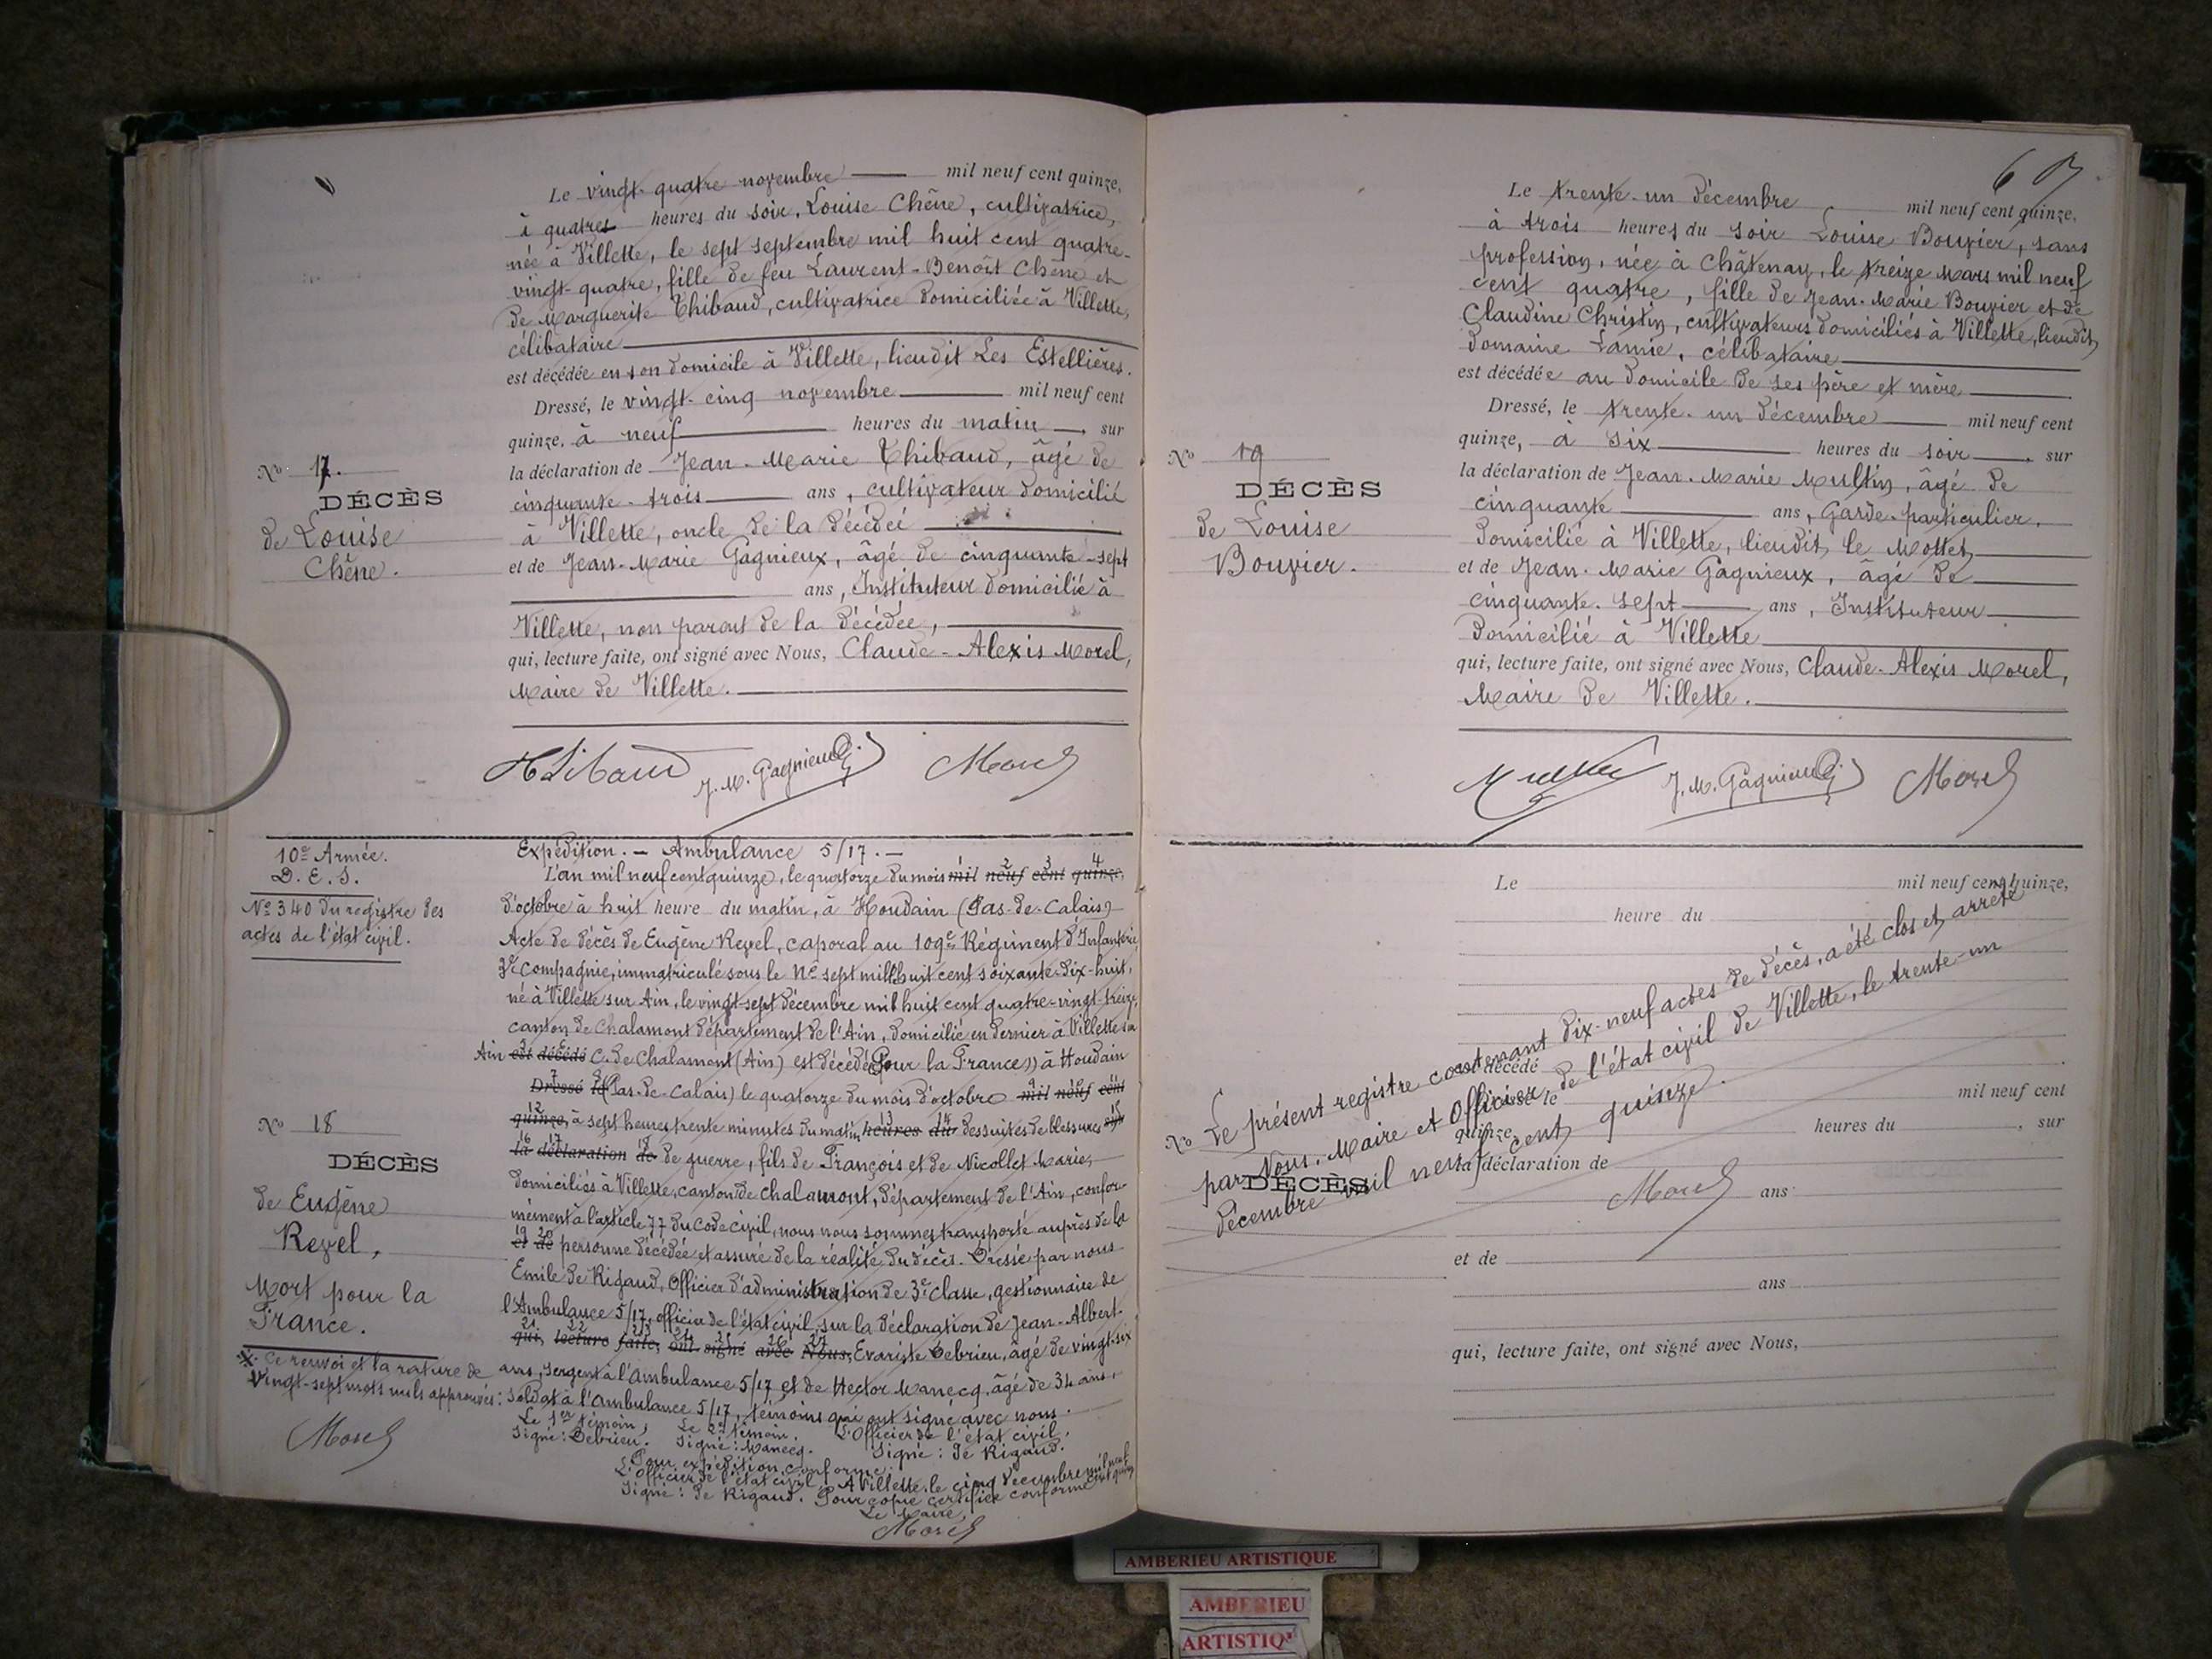 Le vingt-quatre novembre mil neuf cent quinze,
à quatres heures du soir, Louise Chêne, cultivatrice,
née à Villette, le sept septembre mil huit cent quatre-
vingt-quatre, fille de feu Laurent-Benoît Chêne et
de Marguerite Thibaud, cultivatrice domiciliée à Villette,
célibataire
est décédée en son domicile à Villette, lieudit Les Estellières.
Dressé, le vingt-cinq novembre mil neuf cent
quinze, à neuf heures du matin, sur
la déclaration de Jean-Marie Thibaud, âgé de
cinquante-trois ans, cultivateur domicilié
à Villette, oncle de la décédéé
et de Jean-Marie Gagnieux, âgé de cinquante-sept
ans, Instituteur domicilié à
Villette, non parent de la décédée,
qui, lecture faite, ont signé avec Nous, Claude-Alexis Morel,
Maire de Villette.
Nº 17.
DÉCÈS
de Louise
Chêne.
Thibaud J. M. Gagnieux Morel
10e Armée.
D. E. S.
Nº 340 du registre des
actes de l'état civil.
Expédition. - Ambulance 5/17. -
L'an mil neuf cent quinze, le quatorze du mois mil neuf cent quinze,
d'octobre à huit heure du matin, à Houdain (Pas-de-Calais)
Acte de décès de Eugène Revel, caporal au 109e Régiment d'Infanterie,
compagnie, immatriculé sous le Nº sept mille huit cent soixante-dix-huit,
né à Villette sur Ain, le vingt-sept décembre mil huit cent quatre-vingt-treize,
canton de Chalamont département de l'Ain, domicilié en dernier à Villette sur
Ain est décédé C. de Chalamont (Ain) est décédé (Pour la France) à Houdain
Dressé le (Pas-de-Calais) le quatorze du mois d'octobre mil neuf cent
quinze, à sept heures trente minutes du matin heures du des suites de blessures sur
la déclaration de de guerre, fils de François et de Nicollet Marie,
domiciliés à Villette, canton de Chalamont, département de l'Ain, confor-
mément à l'article 77 du Code civil, nous nous sommes transporté auprès de la
et de personne décédée et assuré de la réalité du décès. Dressé par nous
Emile de Rigaud, Officier d'administration de 3e Classe, gestionnaire de
l'Ambulance 5/17, officier de l'état civil, sur la déclaration de Jean-Albert-
qui, lecture faite, ont signé avec Nous, Evariste Debrieu, âgé de vingt-six
ans, Sergent à l'Ambulance 5/17 et de Hector Manecq, âgé de 34 ans,
Soldat à l'Ambulance 5/17, témoins qui ont signé avec nous.
Le 1er témoin, Le 2e témoin. L'Officier de l'état civil,
Signé: Debrieu. Signé: Manecq. Signé: de Rigaud.
Pour expédition conforme:
L'Officier de l'état civil. A Villette, le cinq Décembre mil neuf cent quinze
Signé: de Rigaud. Pour copie certifiée conforme
Le Maire,
Morel
Nº 18
DÉCÈS
de Eugène
Revel,
Mort pour la
France.
Ce renvoi et la rature de
Vingt-sept mots nuls approuvés:
Morel
Le trente-un décembre mil neuf cent quinze,
à trois heures du soir Louise Bouvier, sans
profession, née à Châtenay, le treize Mars mil neuf
cent quatre, fille de Jean-Marie Bouvier et de
Claudine Christin, cultivateurs domiciliés à Villette, lieudit
domaine Lamie, célibataire
est décédée au domicile de ses père et mère
Dressé, le trente-un décembre mil neuf cent
quinze, à six heures du soir, sur
la déclaration de Jean-Marie Multin, âgé de
cinquante ans, Garde-particulier,
domicilié à Villette, lieudit le Mollet,
et de Jean-Marie Gagnieux, âgé de
cinquante-sept ans, Instituteur
domicilié à Villette
qui, lecture faite, ont signé avec Nous, Claude-Alexis Morel,
Maire de Villette.
Nº 19
DÉCÈS
de Louise
Bouvier.
Multin J. M. Gagnieux Morel
Le mil neuf cent quinze,
heure du
est décédé
Dressé le mil neuf cent
quinze, heures du , sur
la déclaration de
ans
et de
ans
qui, lecture faite, ont signé avec Nous,
Nº
DÉCÈS
Le présent registre contenant dix-neuf actes de décès, a été clos et arrêté
par Nous, Maire et Officier de l'état civil de Villette, le trente-un
décembre mil neuf cent quinze.
Morel
AMBERIEU ARTISTIQUE
AMBERIEU
ARTISTIQ